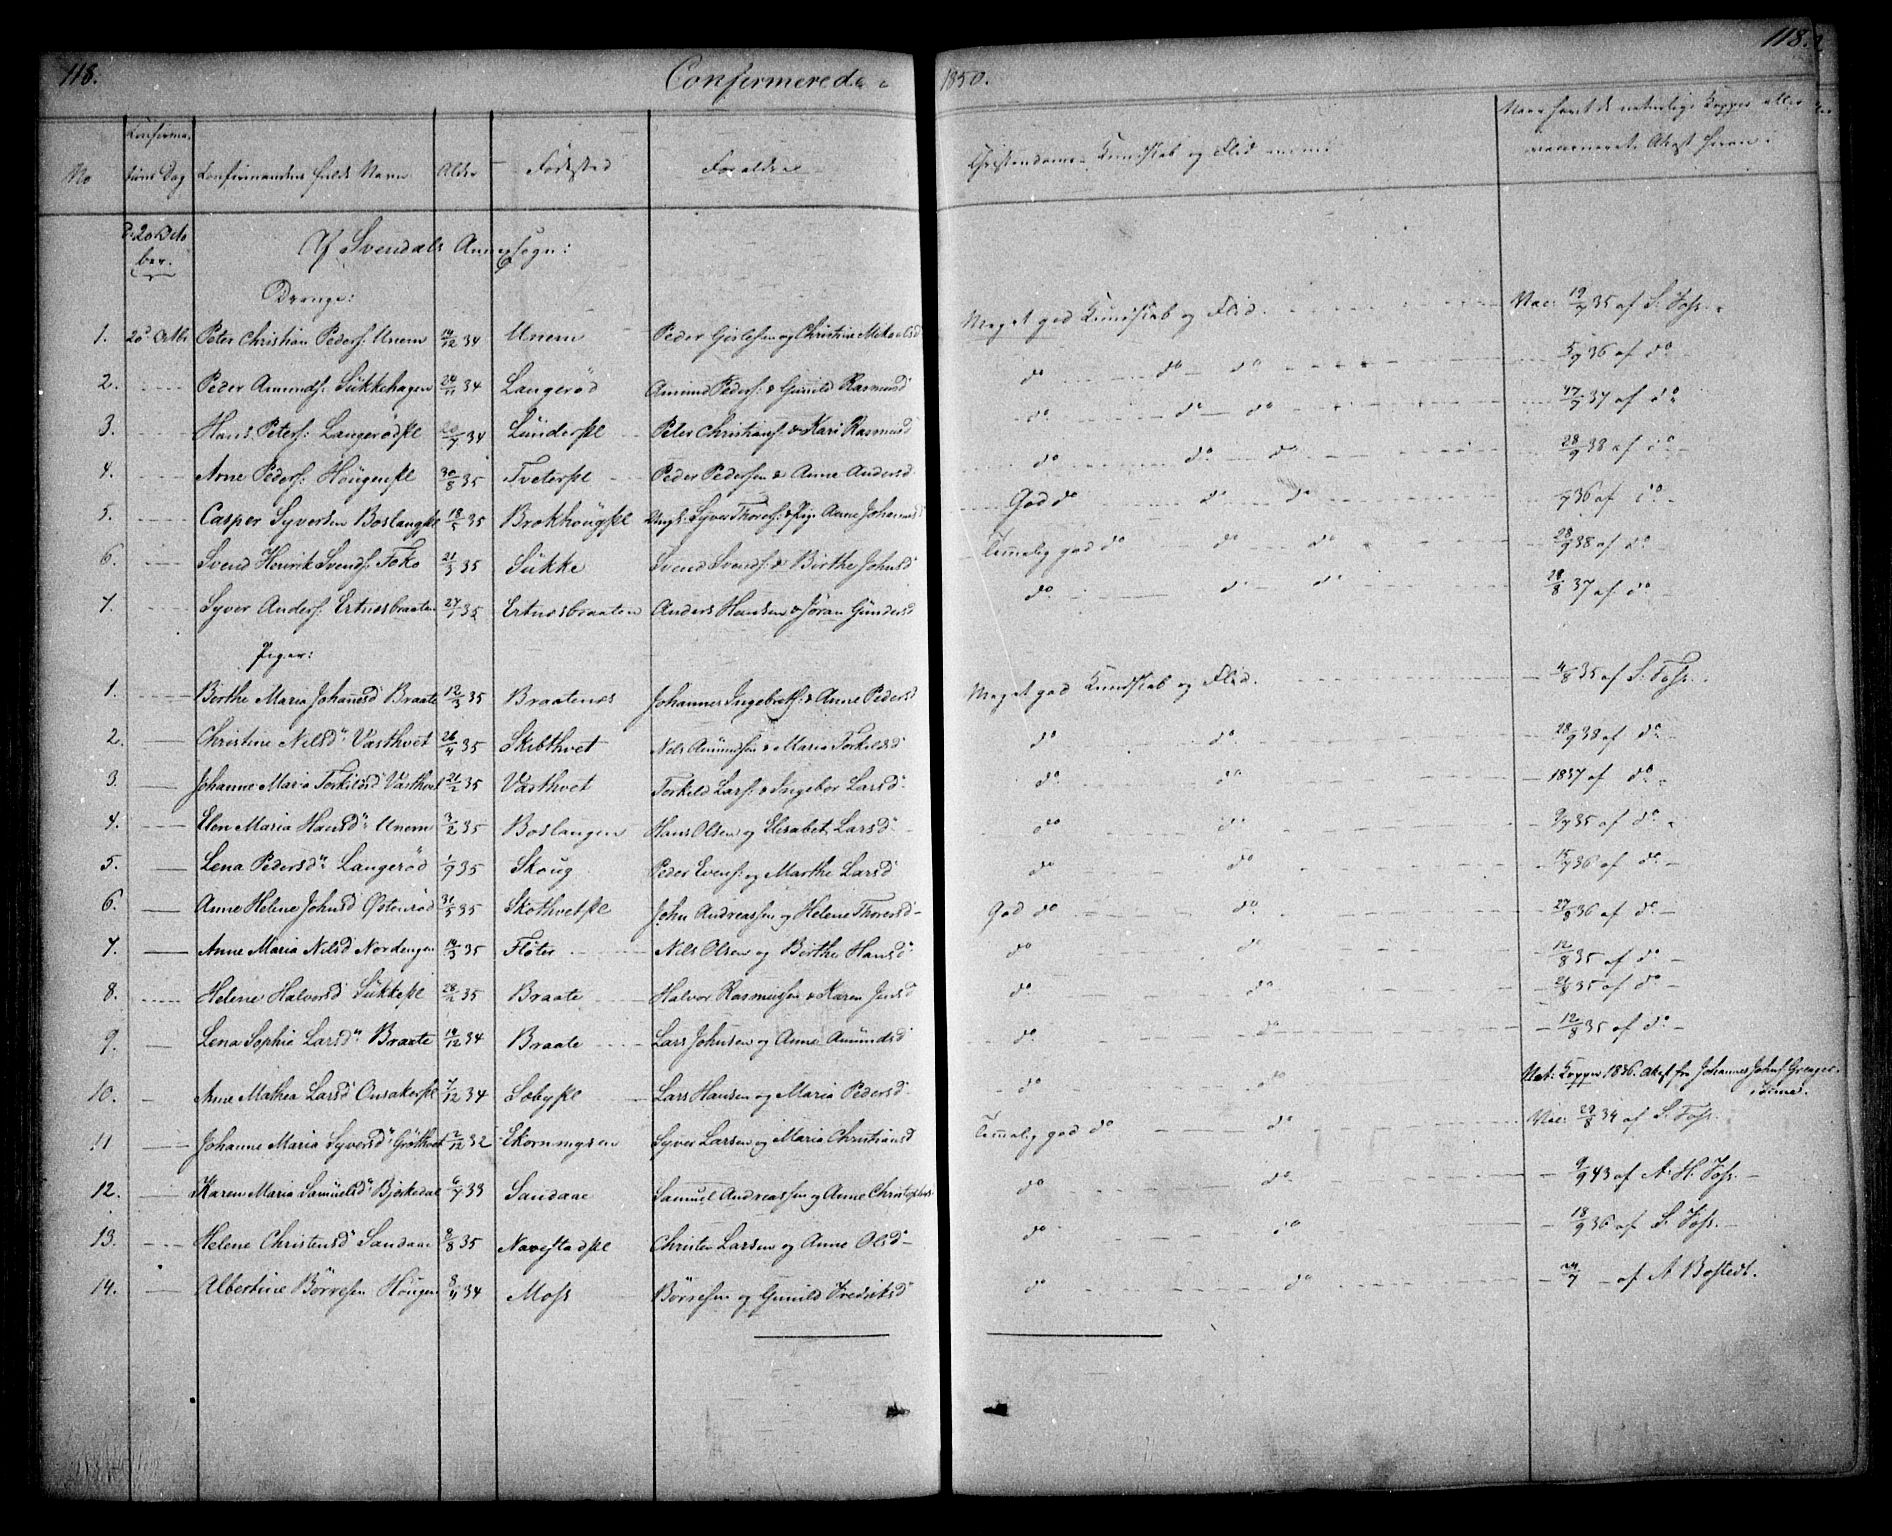 118. Confermerede i 1850. 118.
No Confirmationsdag Confirmandens fulde Navn Alder Fødested Forældre Christendoms Kundskab og Flid Naar havt de naturlige Kopper eller vaccineret. Attest herom
d: 20 October. Af Svendals Annexsogn:
Drenge:
1. 20d Octbr Peter Christian Peders: Unem 14/12 34 Unem Peder og Christine Mikaelsd Meget god Kundskab og Flid. Vac: 19/7 35 af S. Foss.
2. Peder Amunds: Sükkehagen 24/11 34 Langeröd Amund Peders: & Gunild Rasmusd do do do 5/9 36 af do
3. Hans Peters: Langerödpl 34 Lünderpl Peter Christians: & Kari Rasmusd do do do 37 af do
4. Arne Peders: Höugenpl 30/8 35 Tveterpl Peder Pedersen & Anne Andersd do do do 28/9 38 af do
5. Casper Syversen Boslangpl 18/5 35 Brokhöugpl Ungk: Syver Thores: & Pige Anne Johannesd God do do do /9 36 af do
6. Svend Henrik Svends: Foko 21/3 35 Sükke Svend Svends: & Birthe Johnsd Temmelig god do do do 28/9 38 af do
7. Syver Anders: Ertnesbraaten 27/7 35 Ertnesbraaten Anders Hansen & Jöran Gündersd do do do 28/8 37 af do
Piger:
1. Birthe Maria Johansd Braate 12/3 35 Braatenes Johannes Ingebrets: & Anne Pedersd Meget god Kundskab og Flid. 4/8 35 af S. Foss.
2. Christine Nilsd: Vasthvet 26/4 35 Skibthvet Nils Amundsen & Maria Torkilsd do do 28/9 38 af do
3. Johanne Maria Torkildsd Vasthvet 21/2 35 Vasthvet Torkild Lars: & Ingebor Larsd do do 1837 af do
4. Elen Maria Hansd: Unem 3/2 35 Boslangen Hans Olsen og Elisabet Larsd do do 9/7 35 af do
5. Lena Pedersd: Langeröd 1/9 35 Skoug Peder Evens: og Marthe Larsd do do 15/9 36 af do
6. Anne Helene Johnsd Ostenröd 31/5 35 Skothvetpl John Andreassen og Helene Thoresd God do do 27/8 36 af do
7. Anne Maria Nilsd Nordengen 14/3 35 Flöter Nils Olsen og Birthe Hansd do do 12/8 35 af do
8. Helene Halvorsd Sükkepl 28/2 35 Braate Halvor Rasmussen & Karen Jensd do do /8 35 af do
9. Lena Sophie Larsd: Braate 14/12 34 Braate Lars Johnsen og Anne Amundsd do do 12/8 35 af do
10. Anne Mathea Larsd Onsakerpl 7/12 34 Sobypl Lars Hansen og Maria Pedersd do do Nat: Kopper 1836. Attest fra Johannes Johns: Grenger
11. Johanne Maria Syversd: Gröthvet 2/12 32 Skornmysen Syver Larsen og Maria Christiansd Temmelig god do do Vac: 29/8 34 af S. Foss.
12. Karen Maria Samuelsd: Bjorkedal 6/7 33 Sandaae Samuel Andreassen og Anne Christophers do do 9/9 43 af A. H. Foss.
13. Helene Christensd: Sandaae 9/8 35 Navestadpl Christen Larsen og Anne Olsd do do 18/9 36 af S. Foss.
14. Albertine Börresen Höugen 8/11 34 Moss Börresen og Gunild Fredriksd do do 24/7 af A Bostedt.